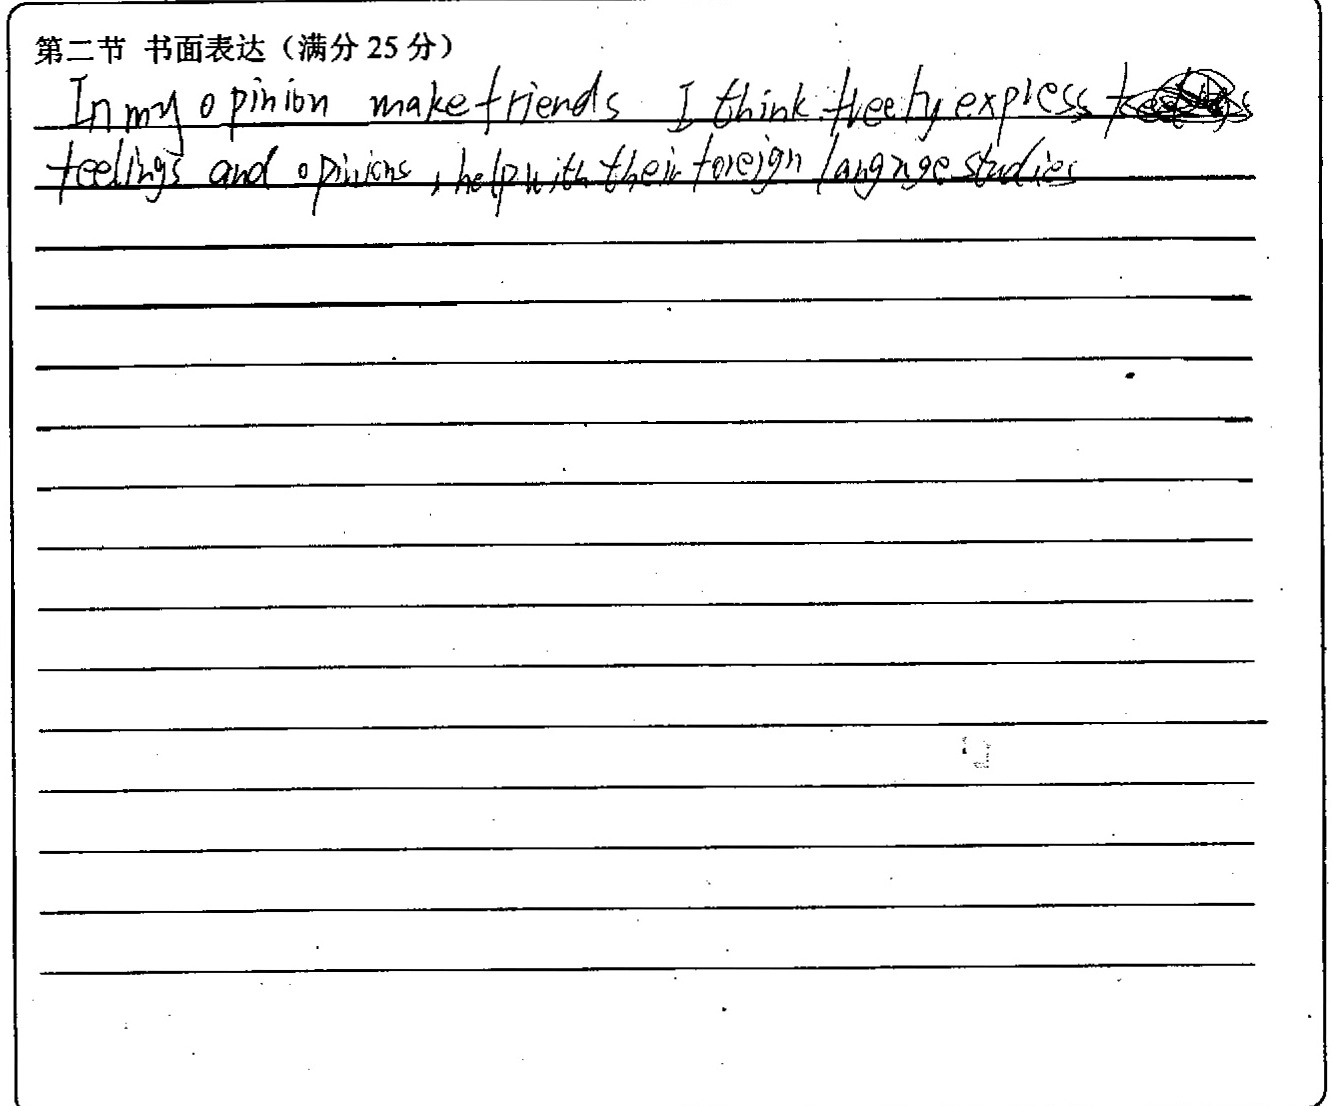 第二节 书面表达（满分 25 分）
In my opinion make friends I think freely express
feelings and opinions , help with their foreign langnge studies